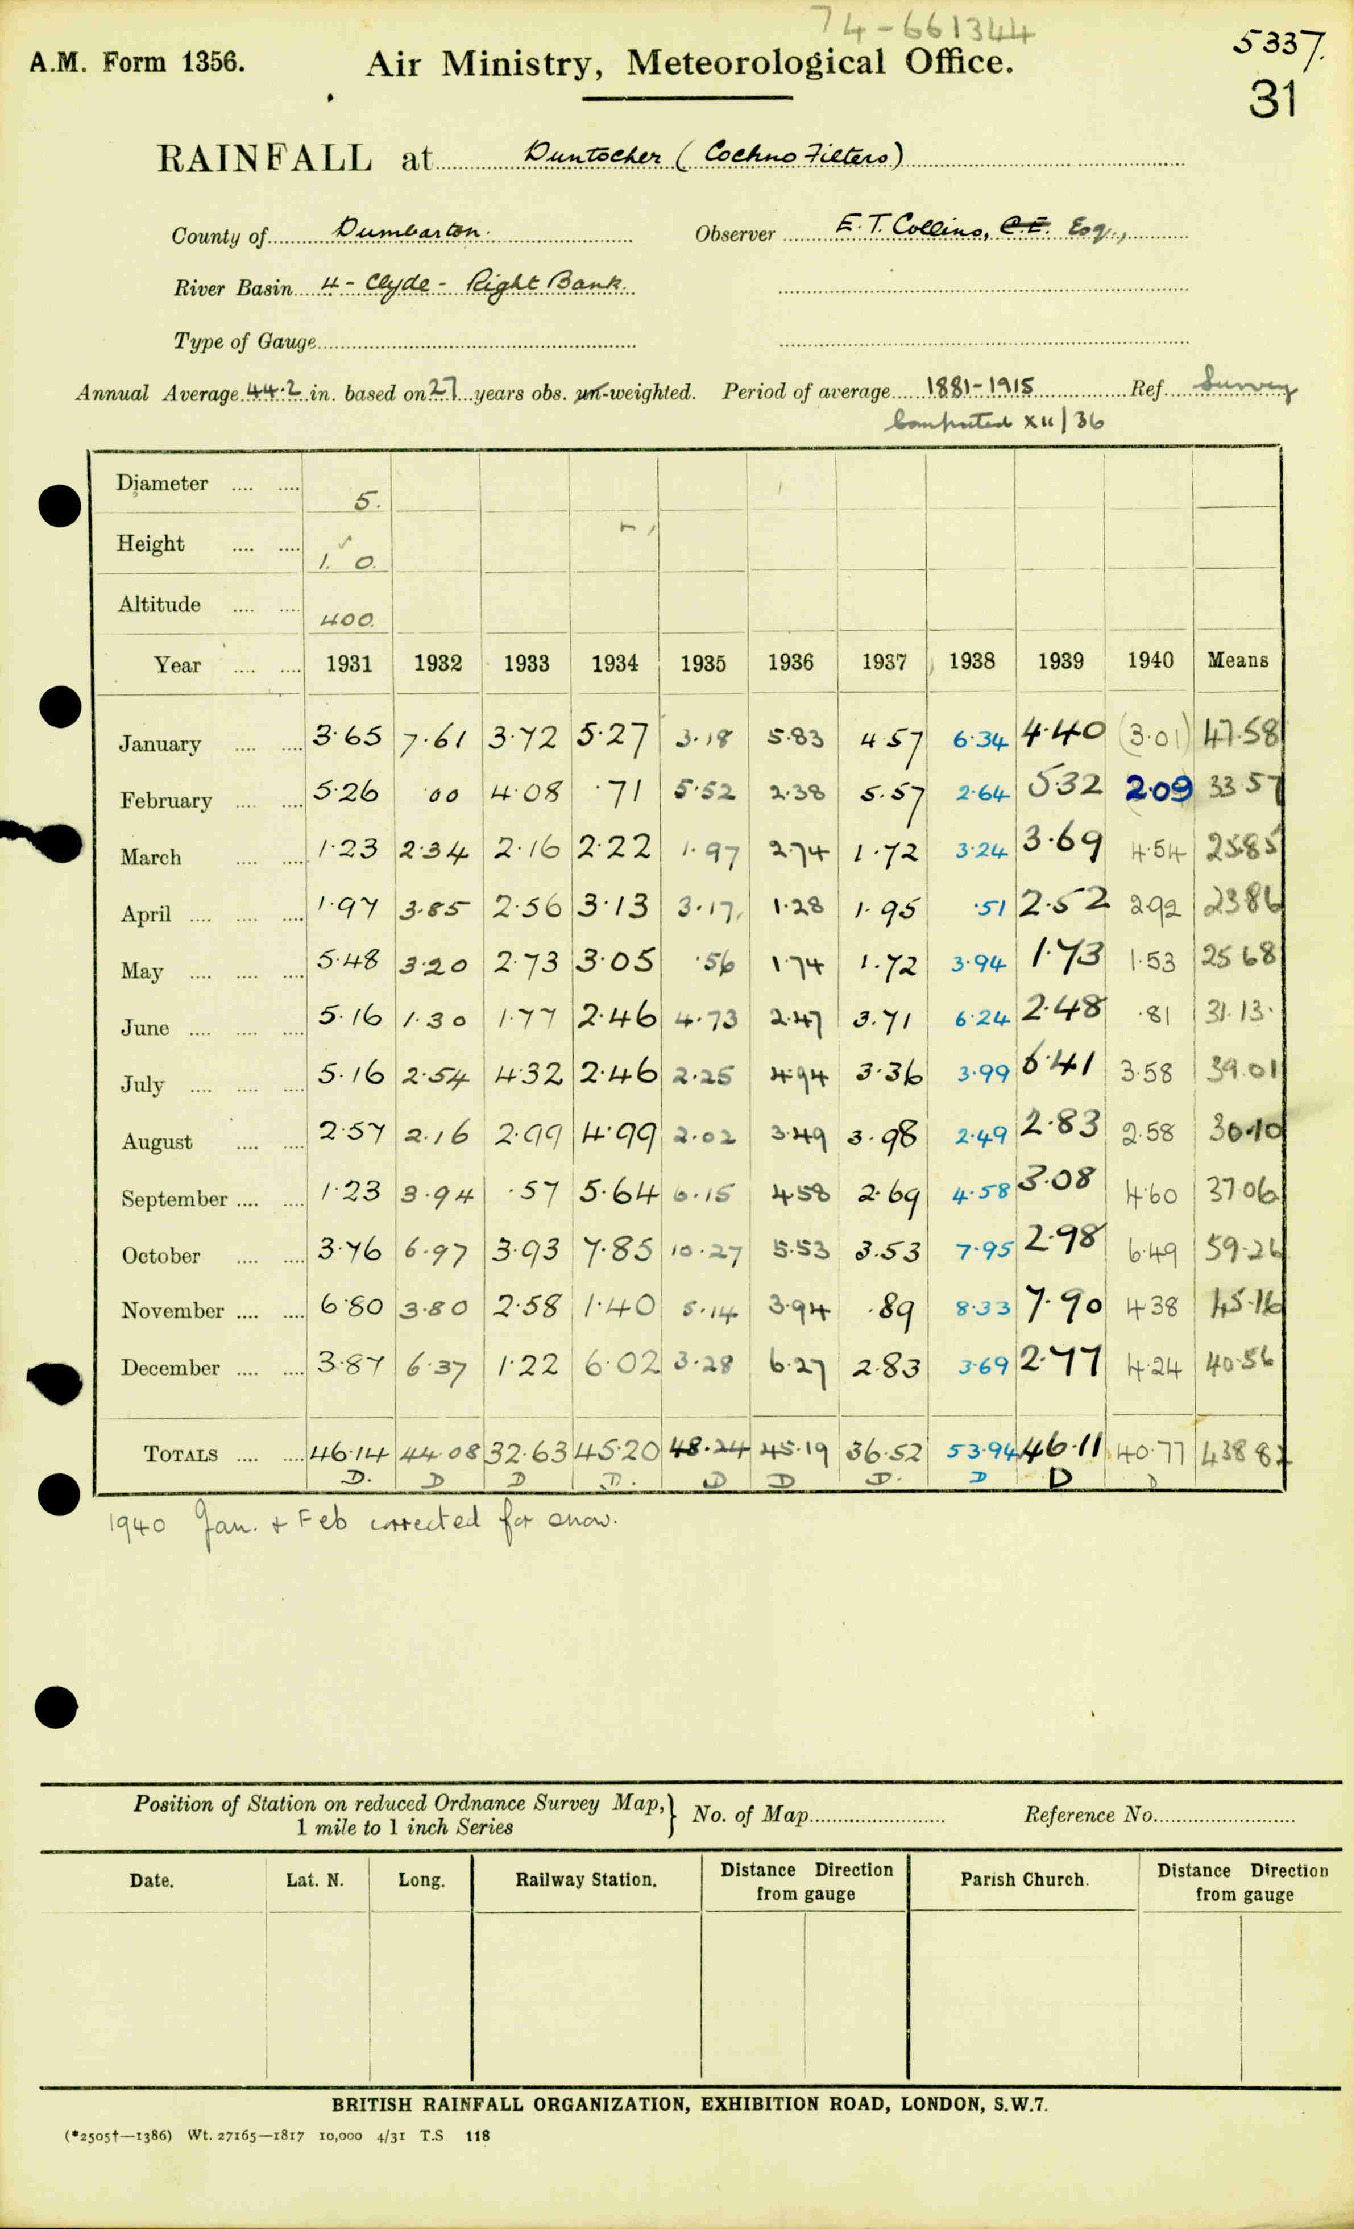 74-661344
5337.
A.M. Form 1356. Air Ministry, Meteorological Office.
31
RAINFALL at Duntocher (Cochno Filters)
County of Dumbarton. Observer E. T. Collins, C.E. Esq.,
River Basin 4 - Clyde - Right Bank.
Type of Gauge
Annual Average 44.2 in. based on 27 years obs. un-weighted. Period of average 1881-1915 Ref. Survey
Computed XII/36
Diameter 5.
Height 1. 0.
Altitude 400.
Year 1931 1932 1933 1934 1935 1936 1937 1938 1939 1940 Means
January 3.65 7.61 3.72 5.27 3.18 5.83 4.57 6.34 4.40 (3.01) 47.58
February 5.26 .00 4.08 .71 5.52 2.38 5.57 2.64 5.32 2.09 33.57
March 1.23 2.34 2.16 2.22 1.97 2.74 1.72 3.24 3.69 4.54 25.85
April 1.97 3.85 2.56 3.13 3.17 1.28 1.95 .51 2.52 2.92 23.86
May 5.48 3.20 2.73 3.05 .56 1.74 1.72 3.94 1.73 1.53 25.68
June 5.16 1.30 1.77 2.46 4.73 2.47 3.71 6.24 2.48 .81 31.13
July 5.16 2.54 4.32 2.46 2.25 4.94 3.36 3.99 6.41 3.58 39.01
August 2.57 2.16 2.99 4.99 2.02 3.49 3.98 2.49 2.83 2.58 30.10
September 1.23 3.94 .57 5.64 6.15 4.58 2.69 4.58 3.08 4.60 37.06
October 3.76 6.97 3.93 7.85 10.27 5.53 3.53 7.95 2.98 6.49 59.26
November 6.80 3.80 2.58 1.40 5.14 3.94 .89 8.33 7.90 4.38 45.16
December 3.87 6.37 1.22 6.02 3.28 6.27 2.83 3.69 2.77 4.24 40.56
TOTALS 46.14 44.08 32.63 45.20 48.24 45.19 36.52 53.94 46.11 40.77 438.82
D. D D D. D D D. D D D
1940 Jan. & Feb corrected for snow.
Position of Station on reduced Ordnance Survey Map, 1 mile to 1 inch Series } No. of Map Reference No.
Date. Lat. N. Long. Railway Station. Distance Direction from gauge Parish Church. Distance Direction from gauge
BRITISH RAINFALL ORGANIZATION, EXHIBITION ROAD, LONDON, S.W.7.
(*2505†—1386) Wt. 27165—1817 10,000 4/31 T.S 118